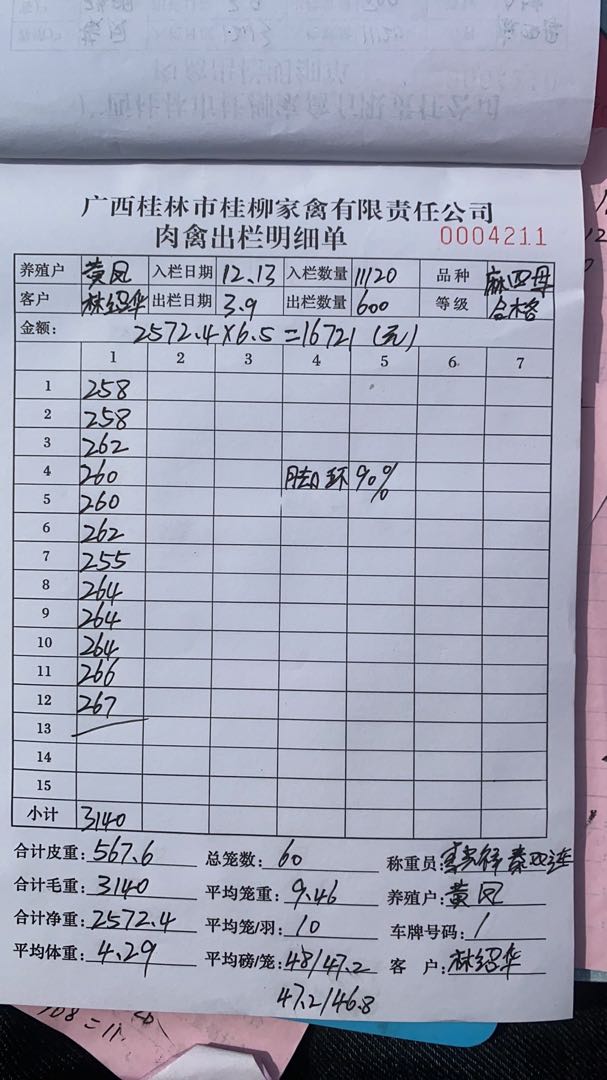 广西桂林市桂柳家禽有限责任公司
肉禽出栏明细单 0004211
养殖户 黄凤 入栏日期 12.13 入栏数量 11120 品种 麻四母
客户 林绍华 出栏日期 3.9 出栏数量 600 等级 合格
金额: 2572.4×6.5=16721(元)
1 2 3 4 5 6 7
1 258
2 258
3 262
4 260 环 90%
5 260
6 262
7 255
8 264
9 264
10 264
11 266
12 267
13
14
15
小计 3140
合计皮重: 567.6 总笼数: 60 称重员:
合计毛重: 3140 平均笼重: 9.46 养殖户: 黄凤
合计净重: 2572.4 平均笼/羽: 10 车牌号码: /
平均体重: 4.29 平均磅/笼: 48/47.2 客户: 林绍华
47.2/46.8